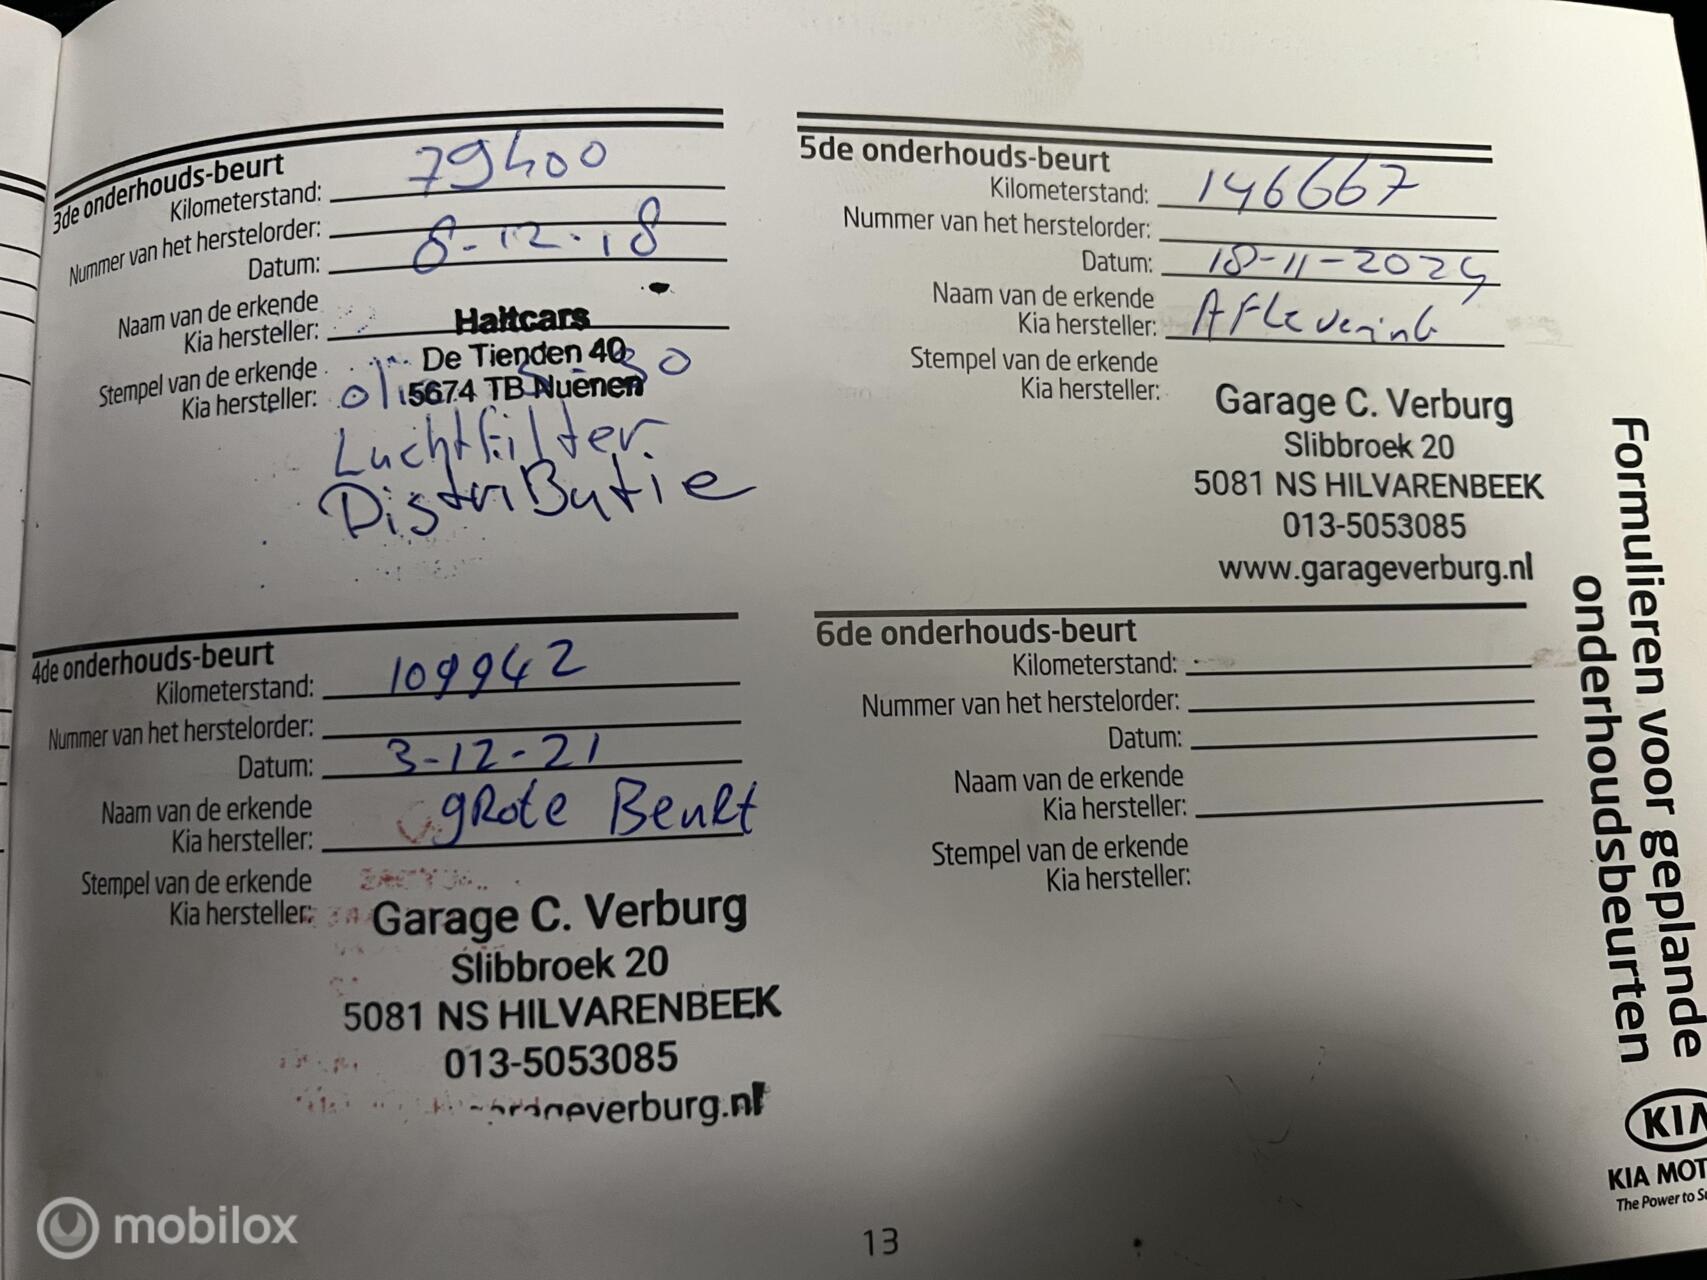 3de onderhouds-beurt
Kilometerstand: 79400
Nummer van het herstelorder:
Datum: 8-12-18
Naam van de erkende
Kia hersteller:
Haltcars
De Tienden 40
Stempel van de erkende
Kia hersteller:
5674 TB Nuenen
Luchtfilter
DistriButie
4de onderhouds-beurt
Kilometerstand: 109942
Nummer van het herstelorder:
Datum: 3-12-21
Naam van de erkende
Kia hersteller: gRote BeuRt
Stempel van de erkende
Kia hersteller:
Garage C. Verburg
Slibbroek 20
5081 NS HILVARENBEEK
013-5053085
garageverburg.nl
5de onderhouds-beurt
Kilometerstand: 146667
Nummer van het herstelorder:
Datum: 18-11-2024
Naam van de erkende
Kia hersteller: Aflevering
Stempel van de erkende
Kia hersteller:
Garage C. Verburg
Slibbroek 20
5081 NS HILVARENBEEK
013-5053085
www.garageverburg.nl
6de onderhouds-beurt
Kilometerstand:
Nummer van het herstelorder:
Datum:
Naam van de erkende
Kia hersteller:
Stempel van de erkende
Kia hersteller:
Formulieren voor geplande
onderhoudsbeurten
KIA
KIA MOT
The Power to Su
13
mobilox